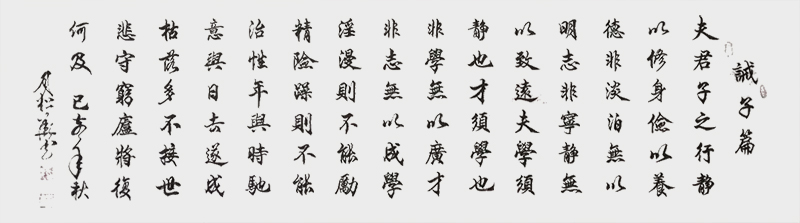 誡子篇
夫君子之行静
以修身儉以養
德非淡泊無以
明志非寧静無
以致遠夫學須
静也才須學也
非學無以廣才
非志無以成學
淫漫則不能勵
精險躁則不能
治性年與時馳
意與日去遂成
枯落多不接世
悲守窮廬將復
何及 己亥年秋